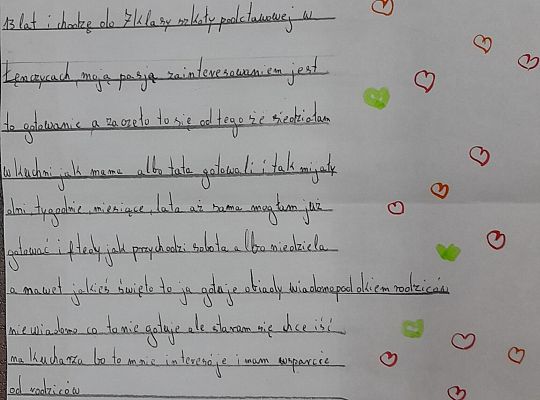 13 lat i chodzę do 7 klasy szkoły podstawowej w
Łęnczycach, moją pasją zainteresowaniem jest
to gotowanie, a zaczęło to się od tego że siedziałam
w kuchni jak mama albo tata gotowali i tak mijały
dni, tygodnie, miesiące, lata aż sama mogłam już
gotować i ftedy jak przychodzi sobota albo niedziela
a nawet jakieś święto to ja gotuje obiady wiadomo pod okiem rodziców
nie wiadomo co to nie gotuje ale staram się chce iść
na kucharza bo to mnie interesuje i mam wsparcie
od rodziców